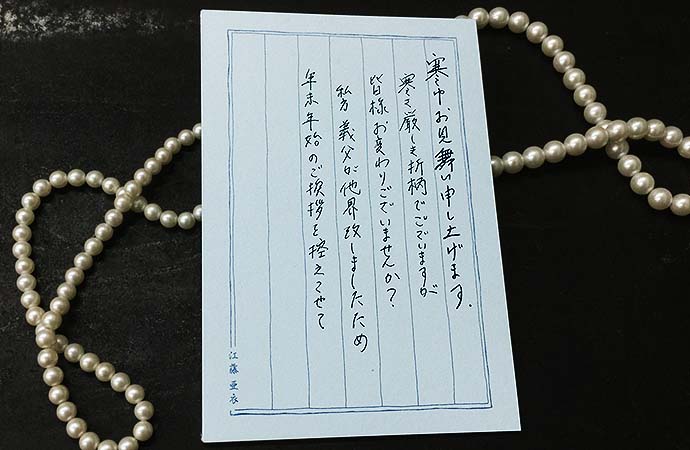 寒中お見舞い申し上げます.
寒さ厳しき折柄でございますが
皆様お変わりございませんか?
私方 義父が他界致しましたため
年末年始のご挨拶を控えさせて
江藤亜衣